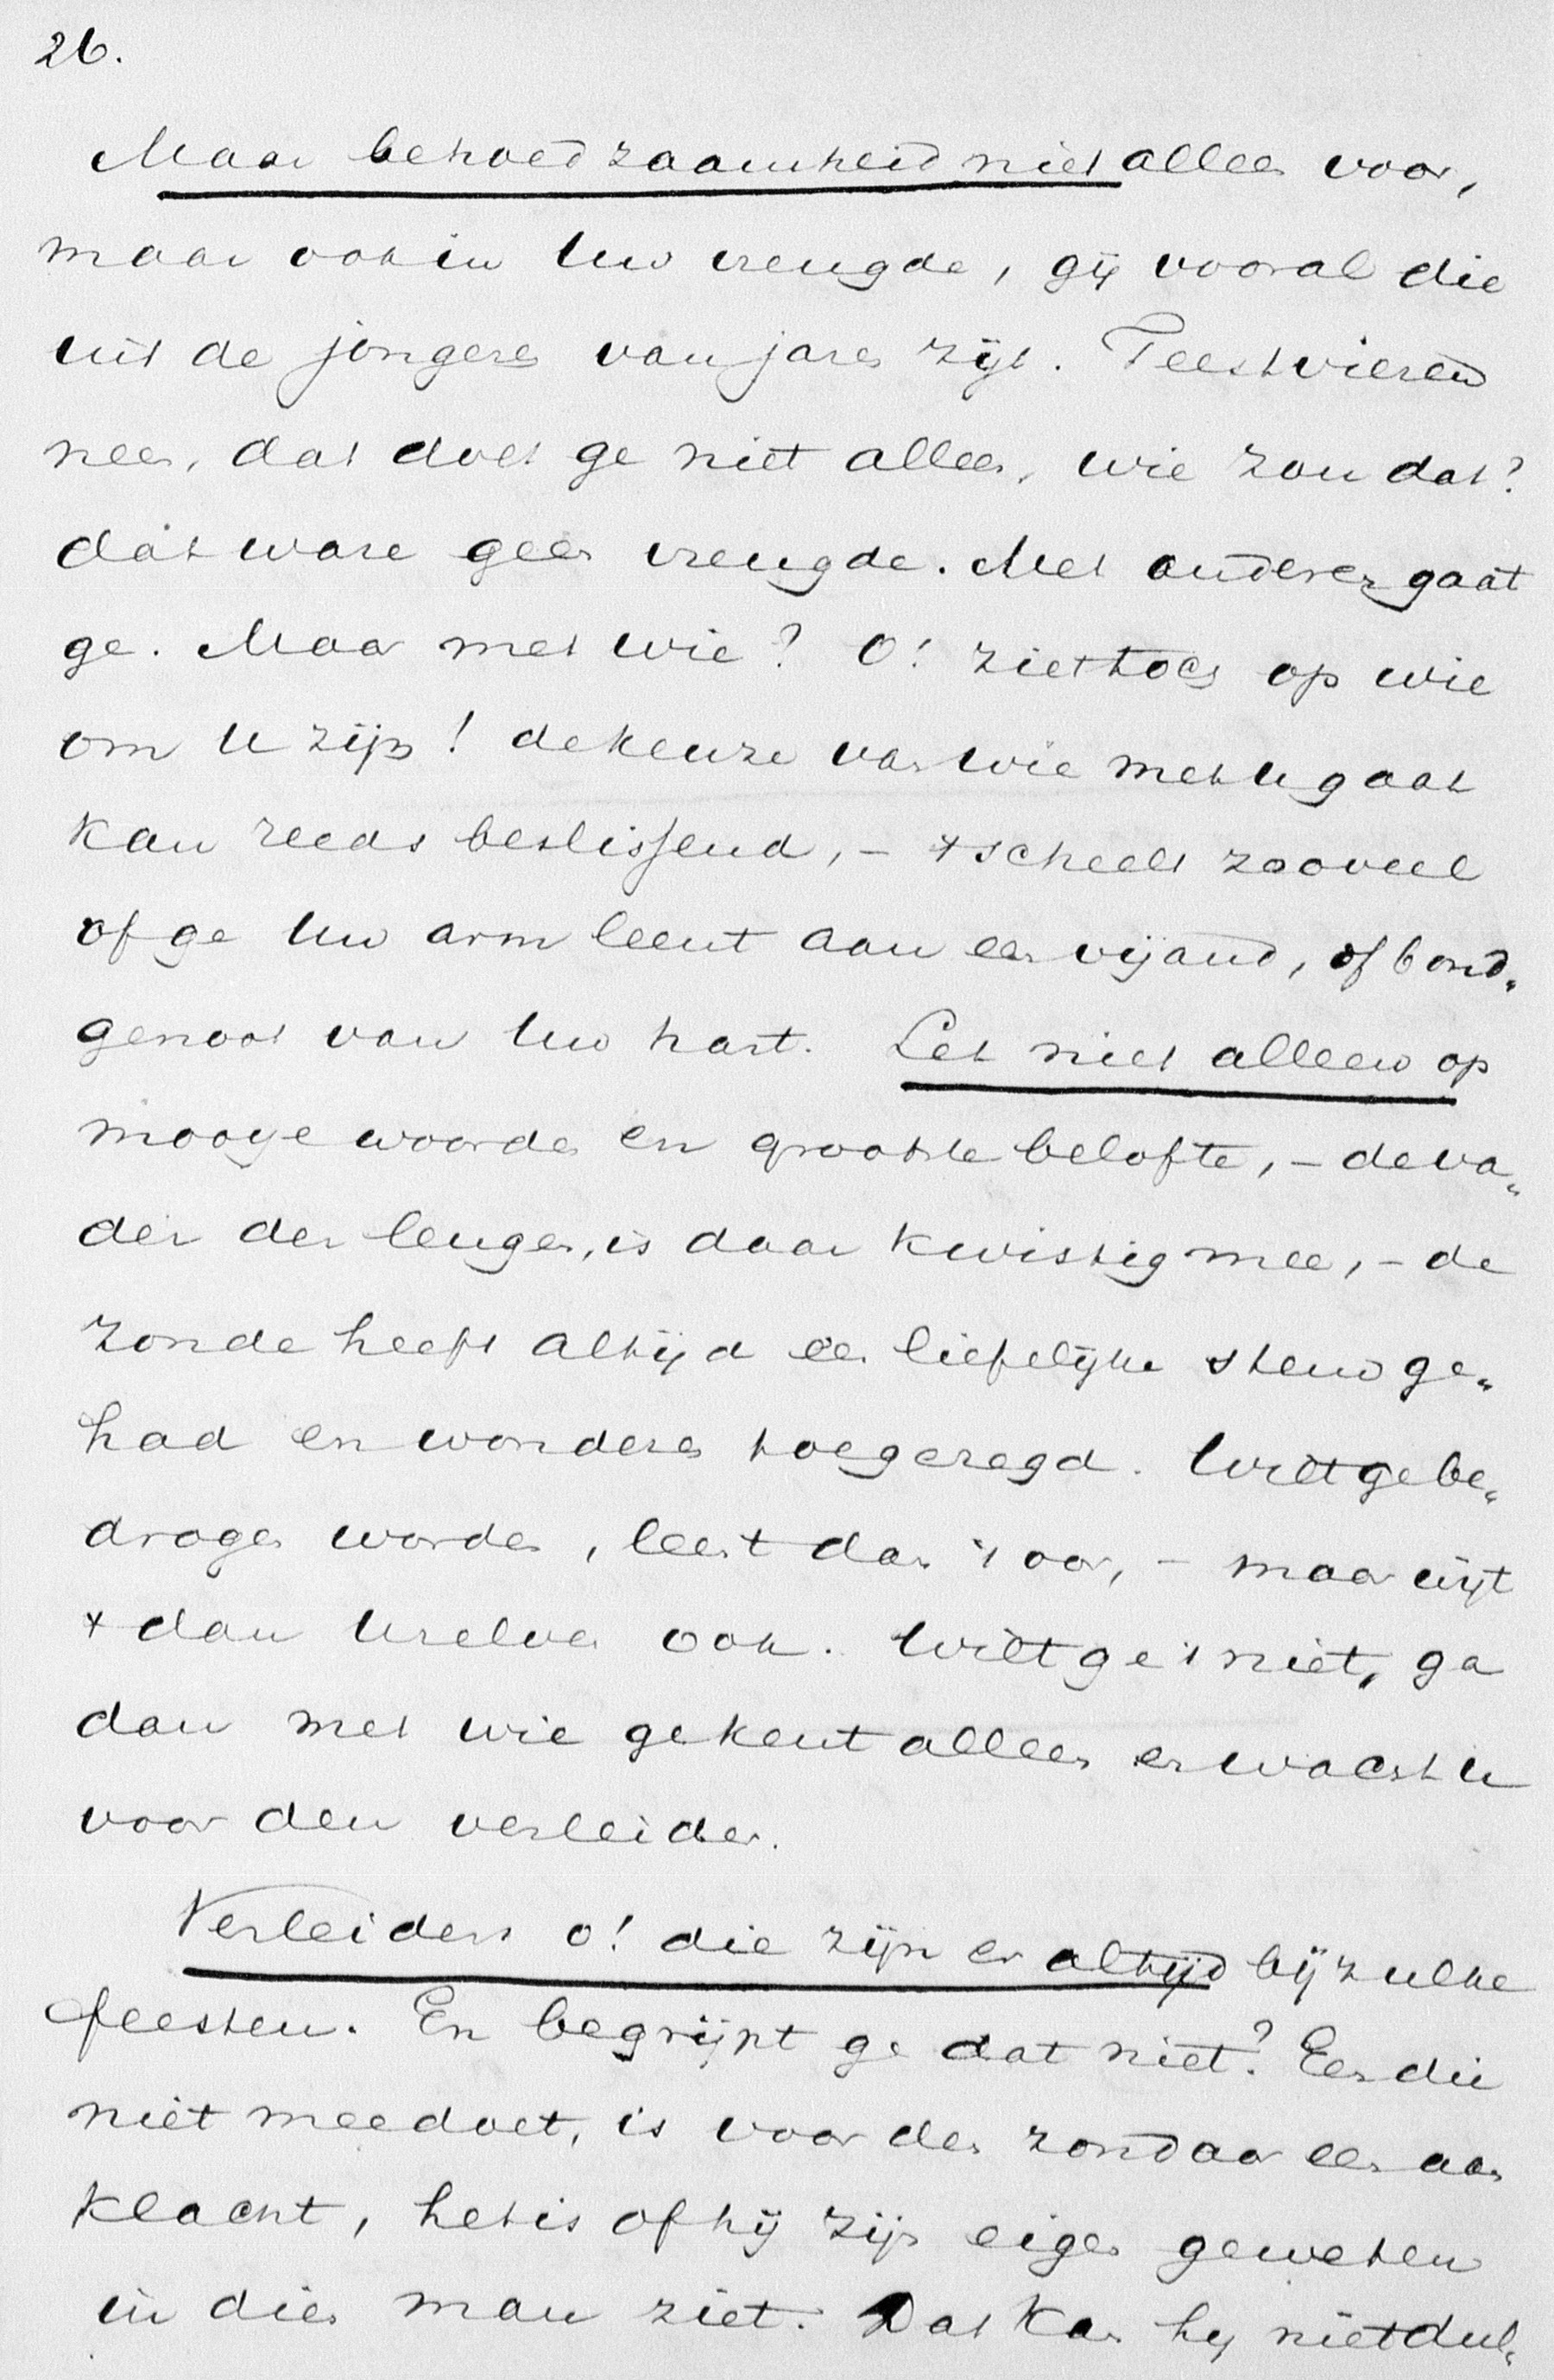 26.
Maar behoedzaamheid niet alleen voor,
maar ook in Uw vreugde, gij vooral die
uit de jongeren van jaren zijt. Feestvieren
neen, dat doet ge niet alleen, wie zou dat?
dat ware geen vreugde. Met anderen gaat
ge. Maar met wie? O! ziet toch op wie
om U zijn! de keuze van wie met U gaat
kan reeds beslissend, – 't scheelt zooveel
of ge Uw arm leent aan een vijand, of bond„
genoot van Uw hart. Let niet alleen op
mooije woorden en grootste belofte, – de va„
der der leugen, is daar kwistig mee, – de
zonde heeft altijd een liefelijke stem ge„
had en wonderen toegezegd. Wilt ge be„
drogen worden, leent dan 't oor, – maar wijt
't dan Uzelven ook. Wilt ge 't niet, ga
dan met wie ge kent alleen en wacht U
voor den verleider.
Verleiders o! die zijn er altijd bij zulke
feesten. En begrijpt ge dat niet? Een die
niet meedoet, is voor den zondaar een aan
klacht, het is of hij zijn eigen geweten
in dien man ziet. Dat kan hij niet dul„